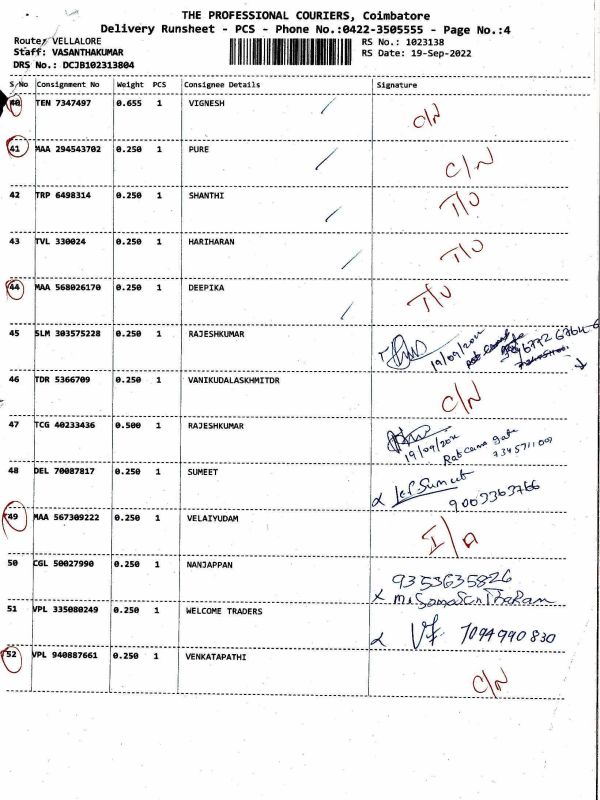 THE PROFESSIONAL COURIERS, Coimbatore
Delivery Runsheet - PCS - Phone No.:0422-3505555 - Page No.:4
Route: VELLALORE
RS No.: 1023138
Staff: VASANTHAKUMAR
RS Date: 19-Sep-2022
DRS No.: DCJB102313804
S/No Consignment No Weight PCS Consignee Details Signature
40 TEN 7347497 0.655 1 VIGNESH C/N
41 MAA 294543702 0.250 1 PURE C/N
42 TRP 6498314 0.250 1 SHANTHI I/O
43 TVL 330024 0.250 1 HARIHARAN I/O
44 MAA 568026170 0.250 1 DEEPIKA I/O
45 SLM 303575228 0.250 1 RAJESHKUMAR 19/09/2022
46 TDR 5366709 0.250 1 VANIKUDALASKHMITDR C/N
47 TCG 40233436 0.500 1 RAJESHKUMAR 19/09/2022
48 DEL 70087817 0.250 1 SUMEET Sumeet
9003363766
49 MAA 567309222 0.250 1 VELAIYUDAM I/A
50 CGL 50027990 0.250 1 NANJAPPAN 9353635826
51 VPL 335080249 0.250 1 WELCOME TRADERS 7094990830
52 VPL 940887661 0.250 1 VENKATAPATHI C/N